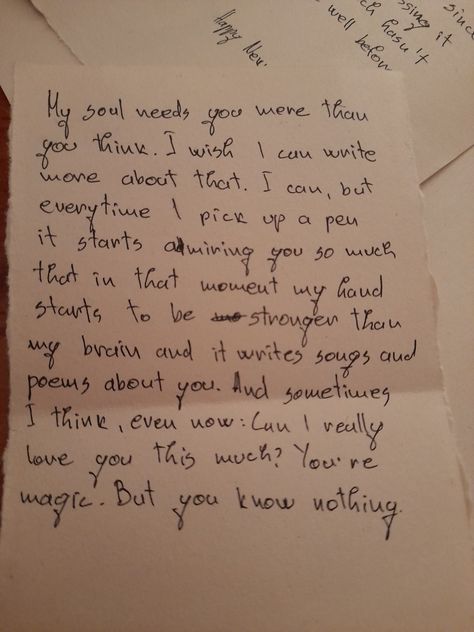 Happy New
since
ssing it
ch hasn't
well befor
My soul needs you more than
you think. I wish I can write
more about that. I can, but
everytime I pick up a pen
it starts admiring you so much
that in that moment my hand
starts to be stronger than
my brain and it writes songs and
poems about you. And sometimes
I think, even now: Can I really
love you this much? You're
magic. But you know nothing.